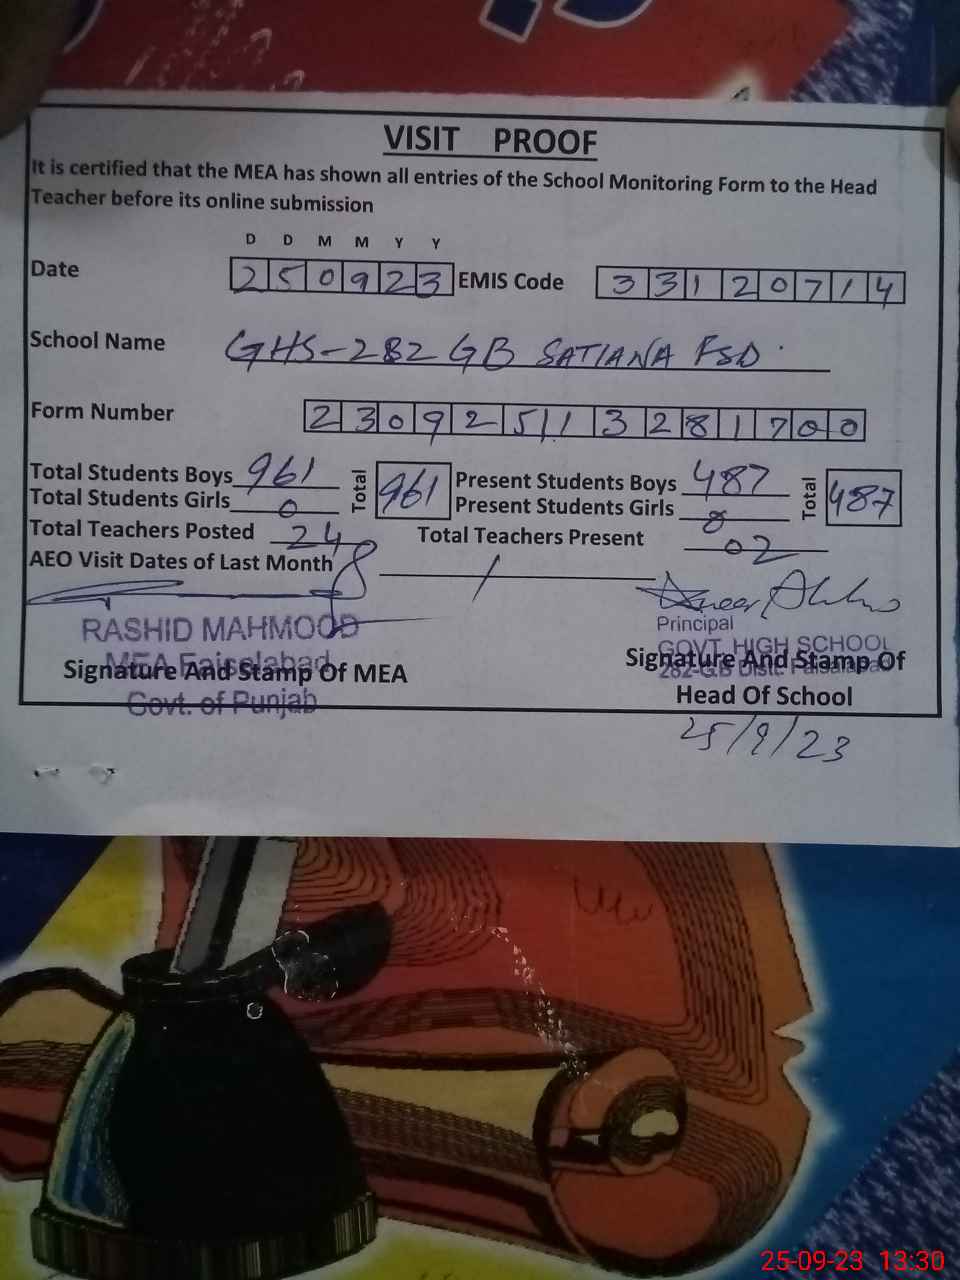 VISIT PROOF
It is certified that the MEA has shown all entries of the School Monitoring Form to the Head
Teacher before its online submission
D D M M Y Y
Date 250923 EMIS Code 33120714
School Name GHS-282 GB SATIANA FSD.
Form Number 230925113281700
Total Students Boys 961 Total 961 Present Students Boys 487 Total 487
Total Students Girls 0 Present Students Girls 0
Total Teachers Posted 24 Total Teachers Present 02
AEO Visit Dates of Last Month 8 /
RASHID MAHMOOD
MEA Faisalabad
Govt. of Punjab
Signature And Stamp Of MEA
Principal
GOVT. HIGH SCHOOL
282-G.B Distt. Faisalabad
Signature And Stamp Of
Head Of School
25/9/23
25-09-23 13:30